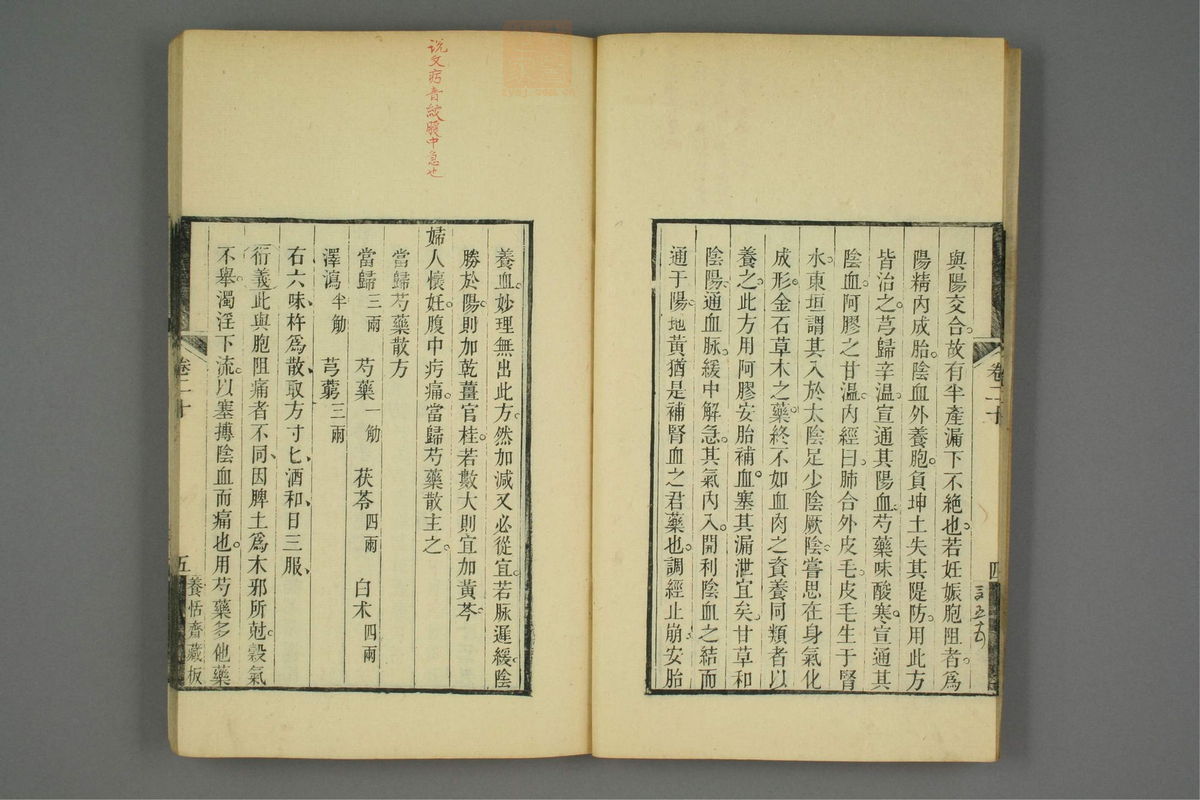 與陽交合故有半產漏下不絕也若妊娠胞阻者為
陽精內成胎陰血外養胞負坤土失其隄防用此方
皆治之芎歸辛溫宣通其陽血芍藥味酸寒宣通其
陰血阿膠之甘溫內經曰肺合外皮毛皮毛生于腎
水東垣謂其入於太陰足少陰厥陰嘗思在身氣化
成形金石草木之藥終不如血肉之資養同類者以
養之此方用阿膠安胎補血塞其漏泄宜矣甘草和
陰陽通血脉緩中解急其氣內入開利陰血之結而
通于陽地黃猶是補腎血之君藥也調經止崩安胎
卷二十
四
説文疞音絞腹中急也
養血妙理無出此方然加減又必從宜若脉遲緩陰
勝於陽則加乾薑官桂若數大則宜加黃芩
婦人懷妊腹中㽲痛當歸芍藥散主之
當歸芍藥散方
當歸三兩 芍藥一觔 茯苓四兩 白术四兩
澤瀉半觔 芎藭三兩
右六味杵為散取方寸匕酒和日三服
衍義此與胞阻痛者不同因脾土為木邪所尅穀氣
不舉濁淫下流以塞搏陰血而痛也用芍藥多他藥
卷二十
五
養恬齋藏板